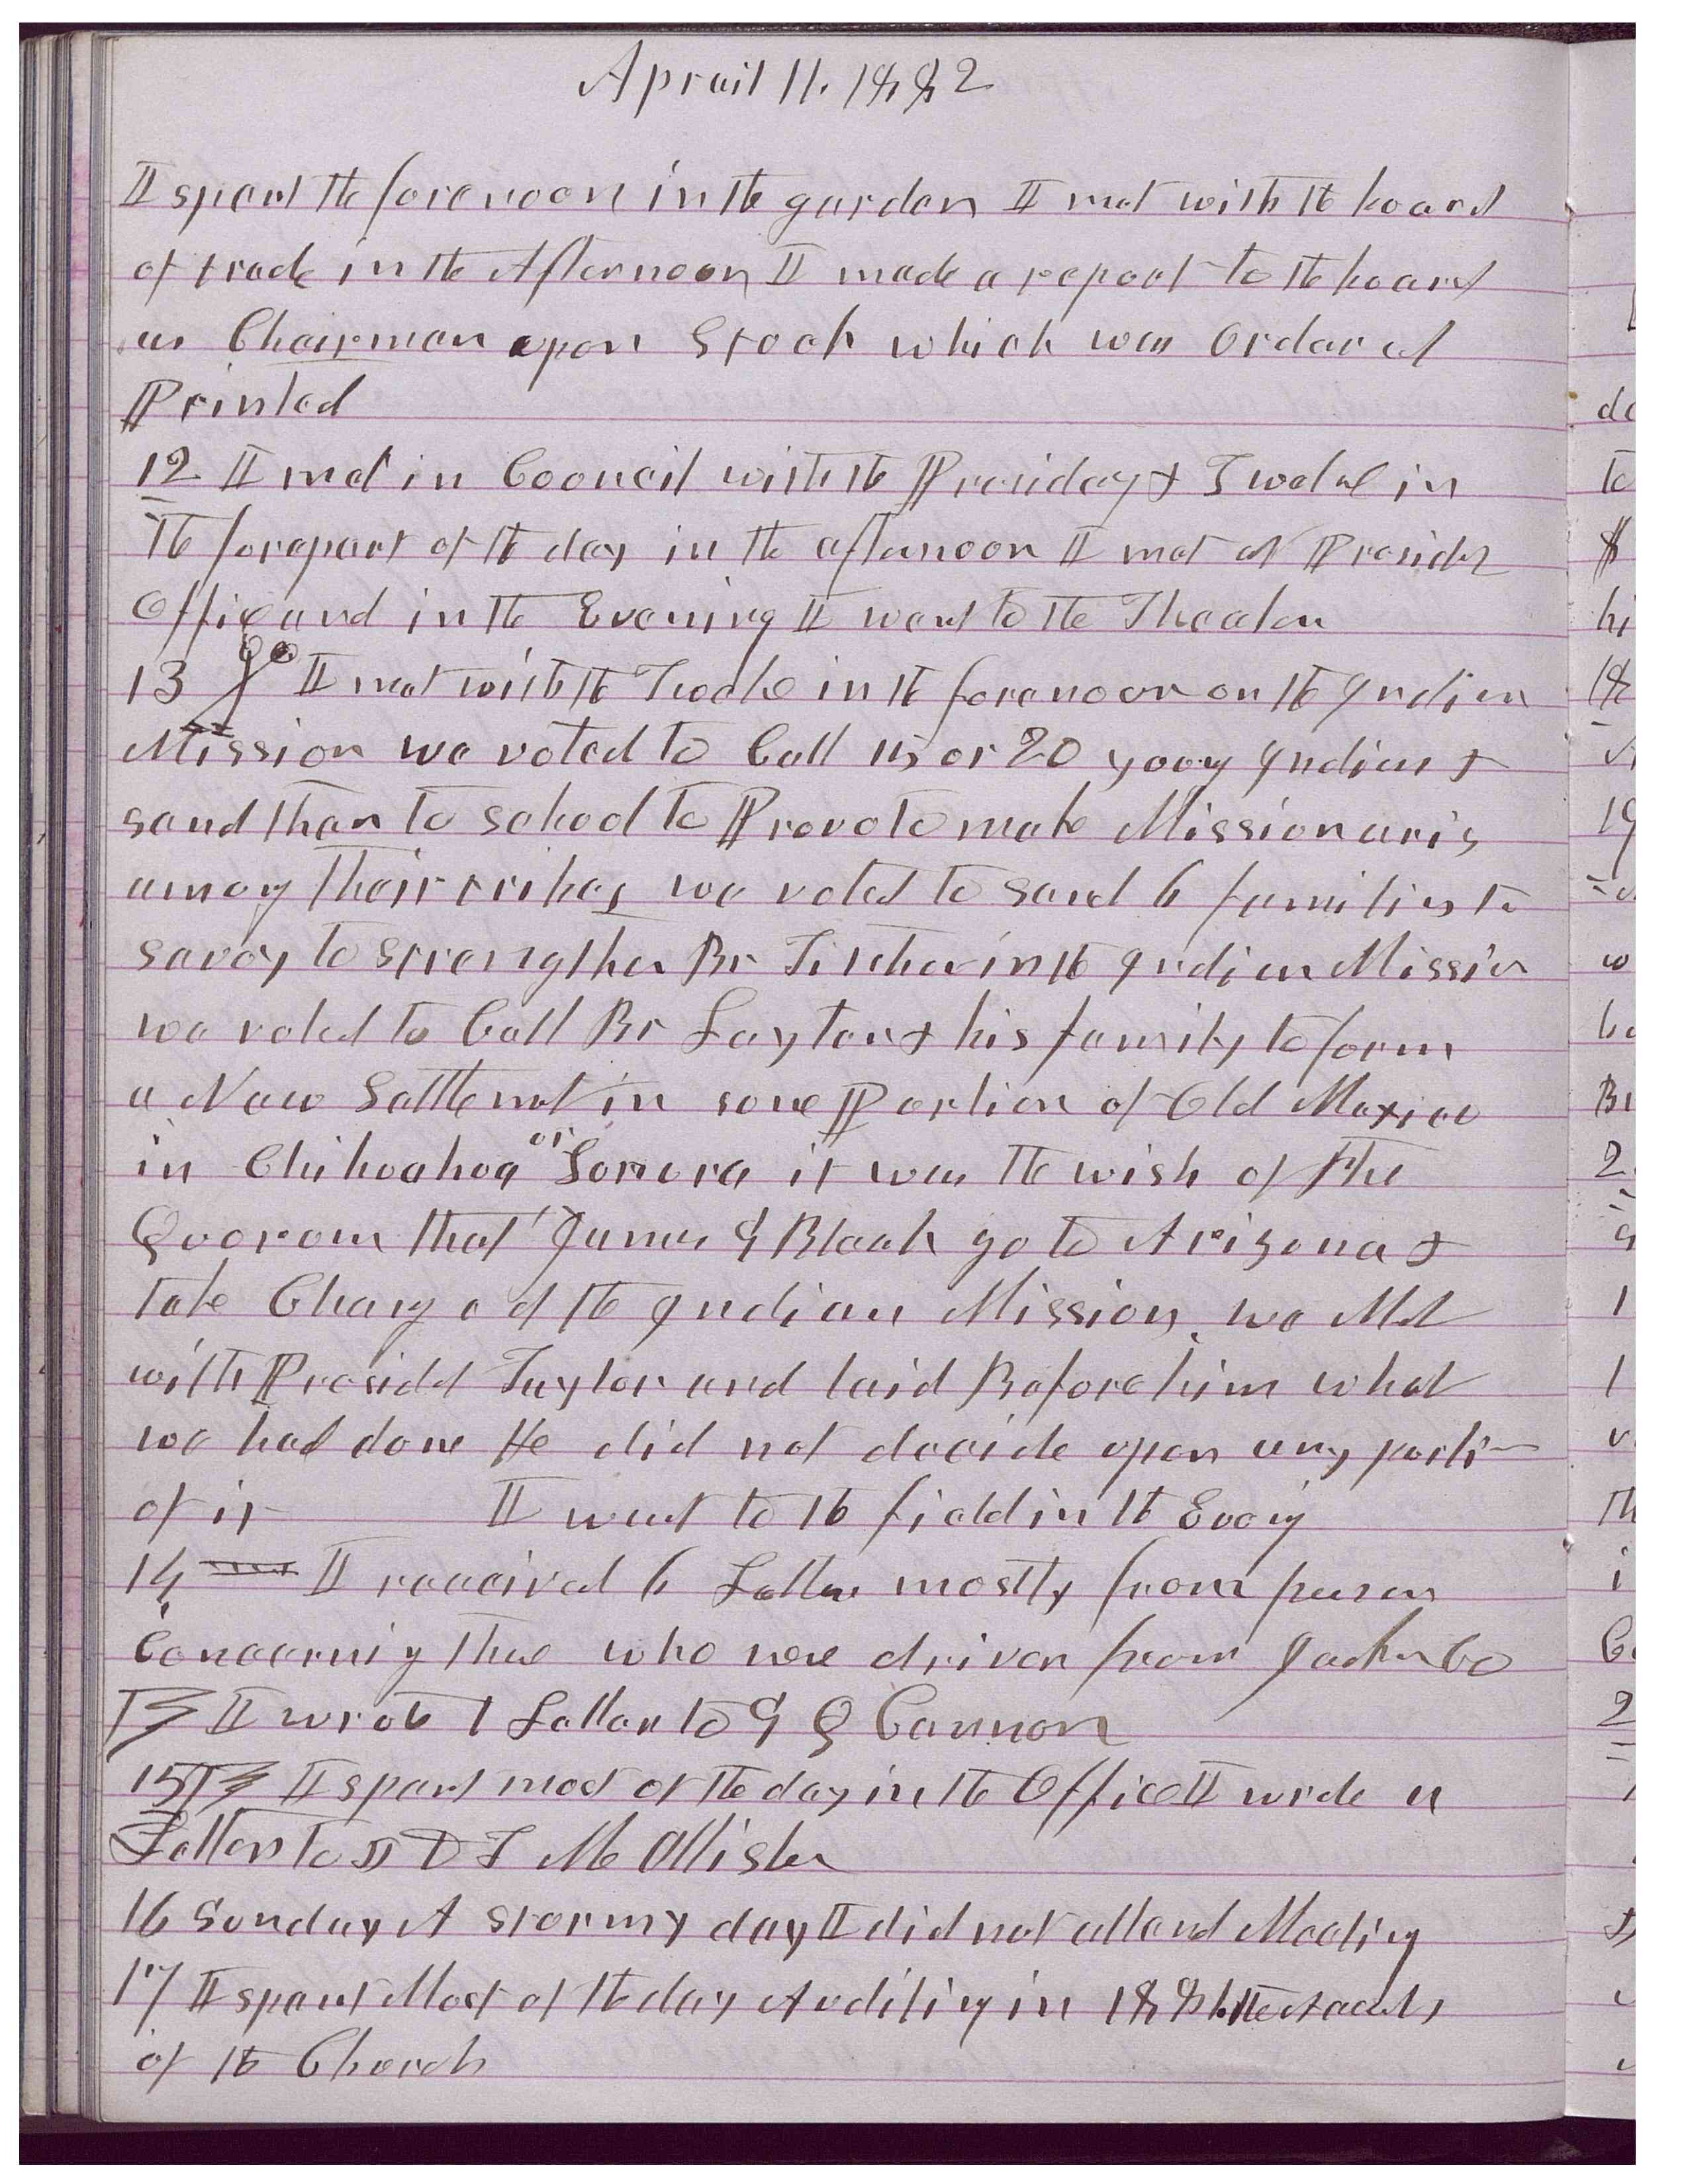 Aprail 11. 1882
I spent the forenoon in the garden I met with the board
of trade in the Afternoon I made a report to the board
as Chairman upon Stock which was Ordered
Printed
12 I met in Cooncil with the Presidey & Twelve in
the forepart of the day in the afternoon I met at Presidets
Office and in the Evening I went to the Theater
13 I met with the Twelve in the forenoon on the Indian
Mission we voted to Call 15 or 20 young Indians &
send them to school to Provo to make Missionaris
among their tribes we voted to send 6 families to
Savoy to strengthen Br Tietjen in the Indian Mission
we voted to Call Br Layton & his family to form
a New Settlemet in some Portion of Old Mexico
in Chihoahoa or Sonora it was the wish of the
Quorom that James I Black go to Arizona &
take Charge of the Indian Mission we Met
with Presidet Taylor and laid Before him what
we had done He did not decide upon any porti-
of it I went to the field in the Evenig
14 I received 6 Letters mostly from
Concernig those who were driven from Jackn Co
I wrote 1 Letter to G Q Cannon
15 I spent most of the day in the Office I wrote a
Letter to J D T McAllister
16 Sunday A stormy day I did not attend Meeting
17 I spent Most of the day Auditing in 1881 the Accts
of the Church